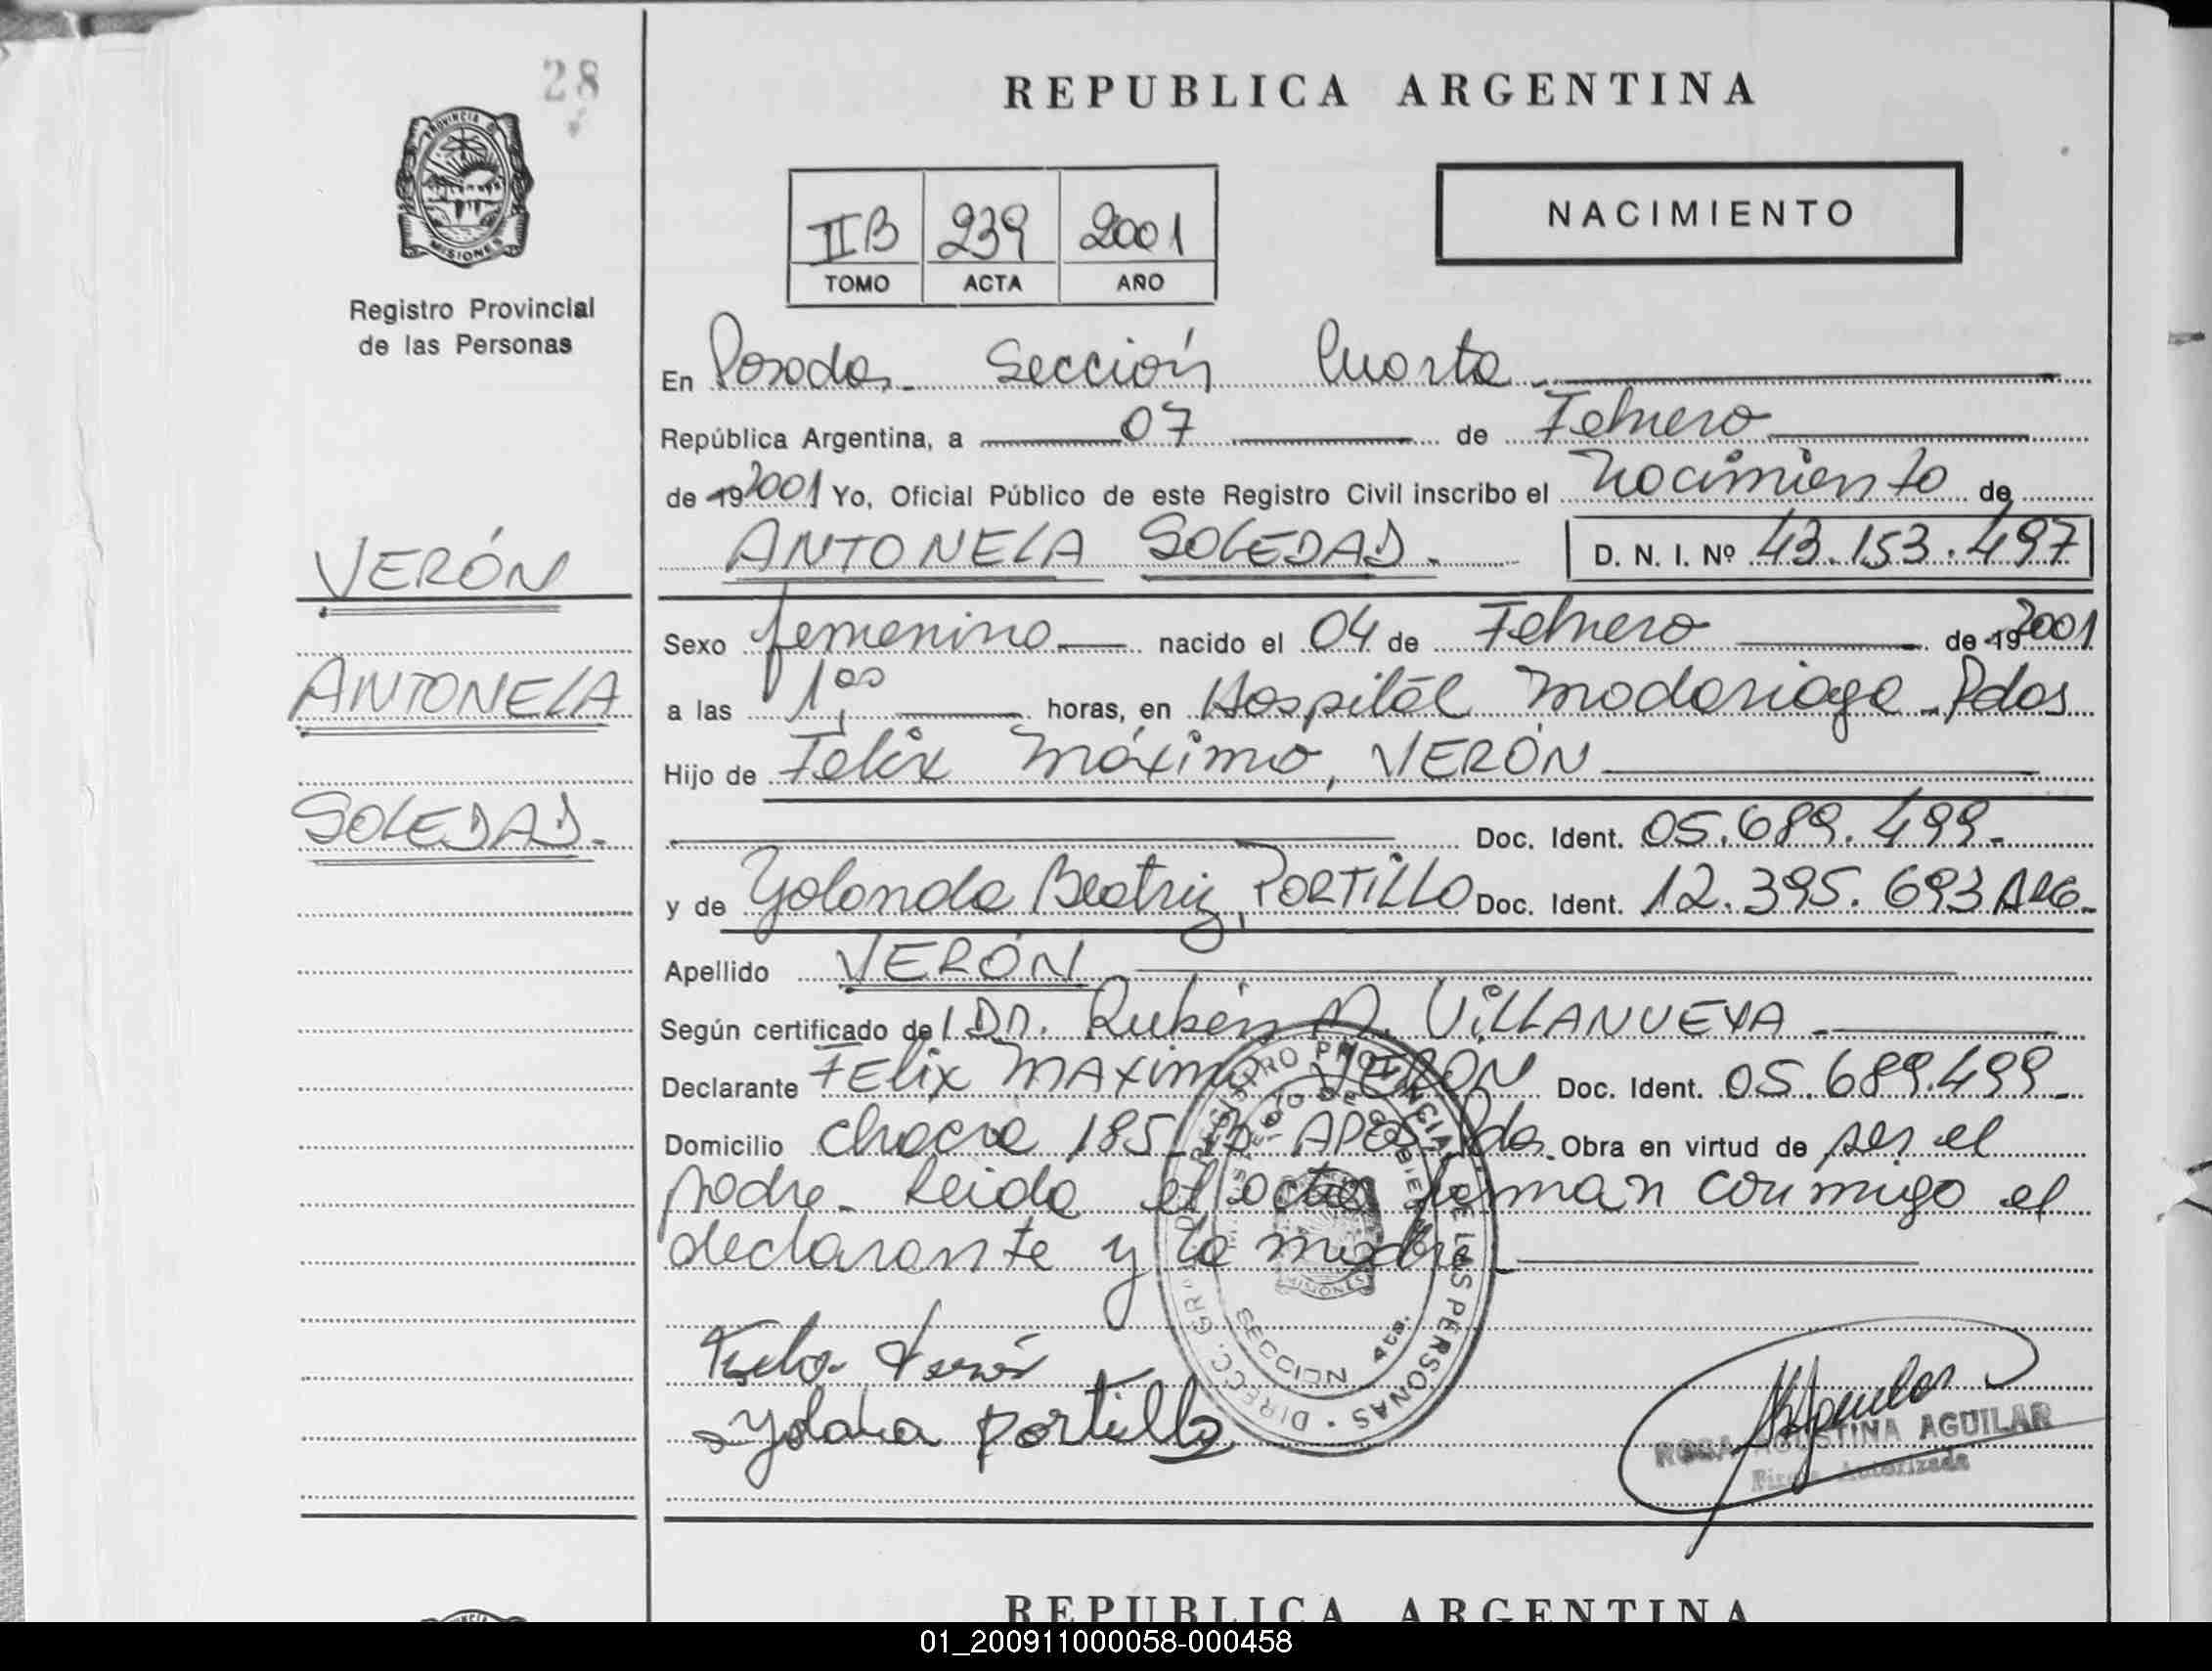 28
PROVINCIA DE
MISIONES
Registro Provincial
de las Personas
VERÓN
ANTONELA
SOLEDAD.-
REPUBLICA ARGENTINA
IIB 239 2001
TOMO ACTA AÑO
NACIMIENTO
En Posadas - Sección Cuarta
República Argentina, a 07 de Febrero
de 19 2001 Yo, Oficial Público de este Registro Civil inscribo el Nacimiento de
ANTONELA SOLEDAD.- D. N. I. Nº 43.153.497
Sexo femenino nacido el 04 de Febrero de 19 2001
a las 1,00 horas, en Hospital Madariaga - Pdas
Hijo de Felix Máximo, VERÓN
Doc. Ident. 05.689.499-
y de Yolanda Beatriz, PORTILLO Doc. Ident. 12.395.693 ARG.-
Apellido VERÓN
Según certificado de l Dr. Rubén M. VILLANUEVA -
Declarante FELIX MAXIMO VERÓN Doc. Ident. 05.689.499-
Domicilio chacra 185 - APOS - Pdas. Obra en virtud de ser el
padre. Leida el acta firman conmigo el
declarante y la madre
DIRECC. GRAL. REGISTRO PROVINCIAL DE LAS PERSONAS
MISIONES
SECCION 4ta.
Verón
Yolanda portillo
ROSA AGUSTINA AGUILAR
Firma Autorizada
REPUBLICA ARGENTINA
01_200911000058-000458